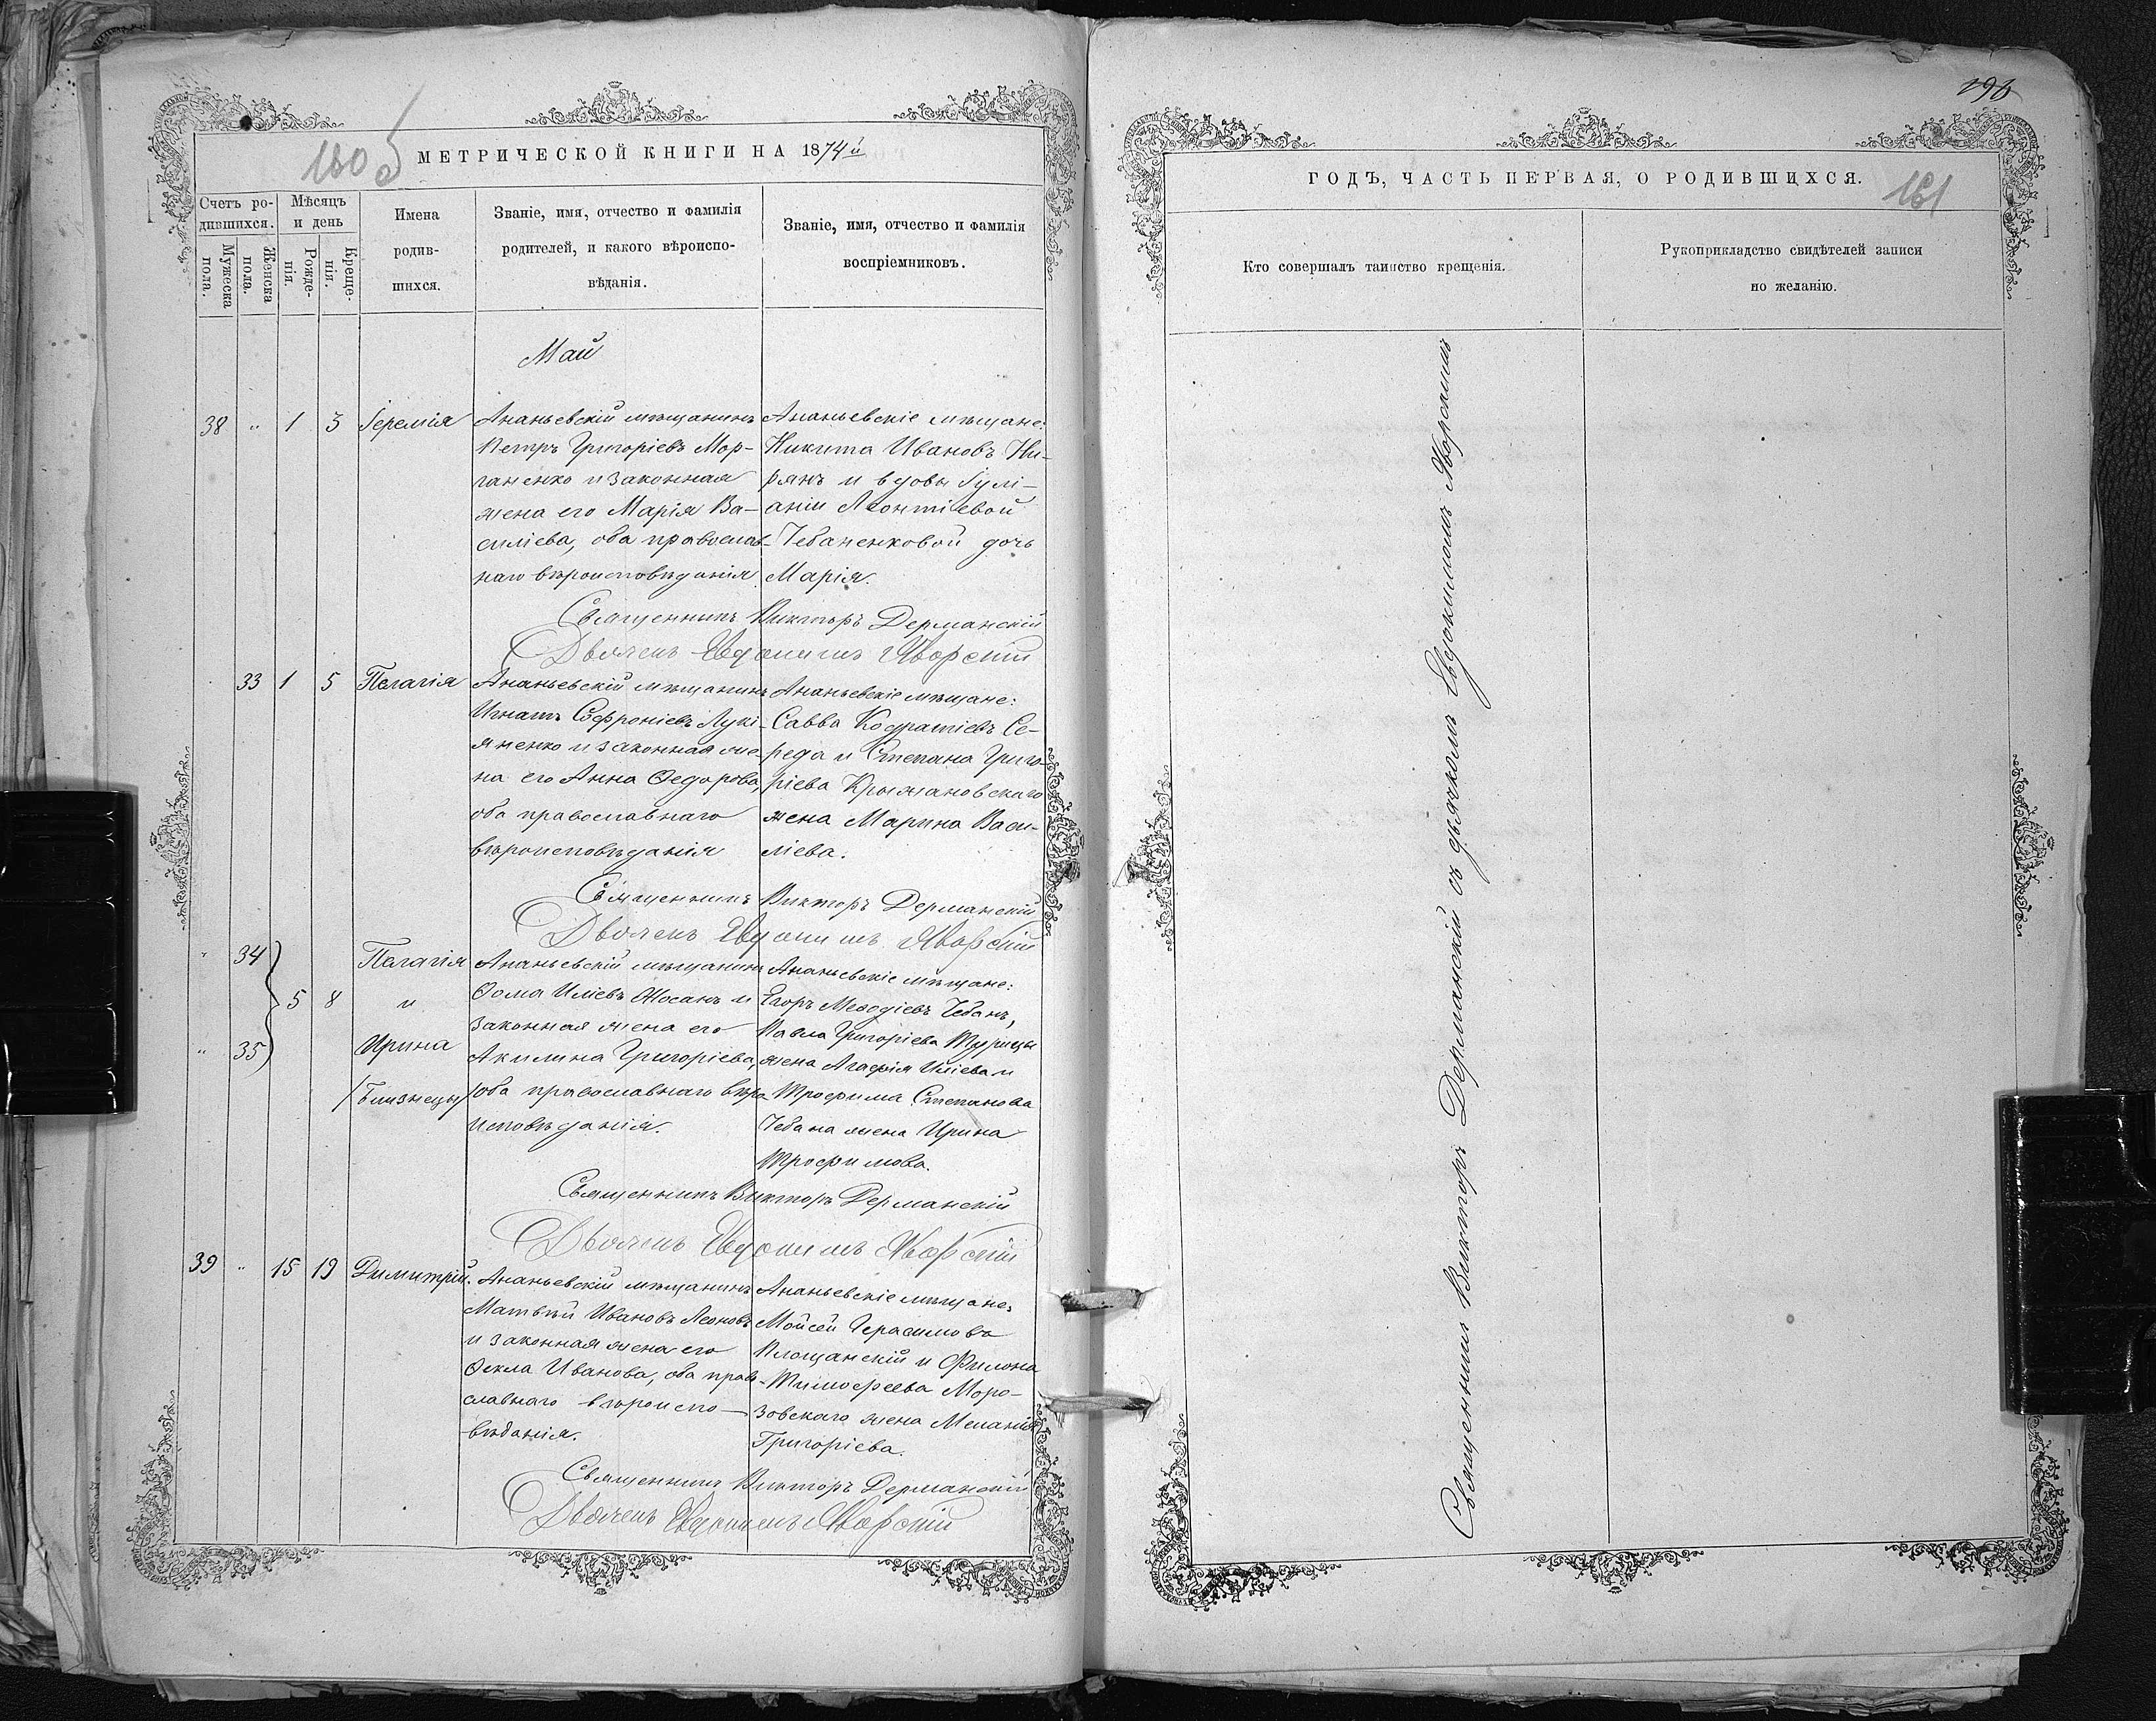 МЕТРИЧЕСКОЙ КНИГИ НА 1874й
Счетъ ро-
дившихся.
Мужеска
пола.
Женска
пола.
Мѣсяцъ
и день
Рожде-
нія.
Креще-
нія.
Имена
родив-
шихся.
Званіе, имя, отчество и фамилія
родителей, и какого вѣроиспо-
вѣданія.
Званіе, имя, отчество и фамилія
воспріемниковъ.
Май
38 " 1 3 Іеремія
Ананьевскій мѣщанинъ
Петръ Григоріевъ Мор-
ганенко и законная
жена его Марія Ва-
силіева, оба православ-
наго вѣроисповѣданія
Ананьевскіе мѣщане:
Никита Ивановъ Ки-
рянъ и вдовы Іулі-
аніи Леонтіевой
Чебаненковой дочь
Марія.
Священникъ Викторъ Дерманскій
Дьячекъ Евдокимъ Яворскій
33 1 5 Пелагія
Ананьевскій мѣщанинъ
Игнатъ Софроніевъ Лукі-
яненко и законная же-
на его Анна Ѳедорова,
оба православнаго
вѣроисповѣданія
Ананьевскіе мѣщане:
Савва Кодратіевъ Се-
реда и Степана Григо-
ріева Крыжановскаго
жена Марина Васи-
ліева.
Священникъ Викторъ Дерманскій
Дьячекъ Евдокимъ Яворскій
" 34
" 35
5 8
Пелагія
и
Ирина
/Близнецы/
Ананьевскій мѣщанинъ
Ѳома Иліевъ Жосанъ и
законная жена его
Акилина Григоріева,
оба православнаго вѣро
исповѣданія.
Ананьевскіе мѣщане:
Егоръ Меѳодіевъ Чебанъ,
Павла Григоріева
жена Агафія Иліева и
Трофима Степанова
Чебана жена Ирина
Трофимова.
Священникъ Викторъ Дерманскій
Дьячекъ Евдокимъ Яворскій
39 " 15 19 Димитрій.
Ананьевскій мѣщанинъ
Матвѣй Ивановъ Леоновъ
и законная жена его
Ѳекла Иванова, оба право-
славнаго вѣроиспо-
вѣданія.
Ананьевскіе мѣщане:
Мойсей Герасимовъ
Площанскій и Филона
Тимофеева Моро-
зовскаго жена Меланія
Григоріева.
Священникъ Викторъ Дерманскій
Дьячекъ Евдокимъ Яворскій
296
ГОДЪ, ЧАСТЬ ПЕРВАЯ, О РОДИВШИХСЯ.
181
Кто совершалъ таинство крещенія.
Рукоприкладство свидѣтелей записи
по желанію.
Священникъ Викторъ Дерманскій съ дьячкомъ Евдокимомъ Яворскимъ